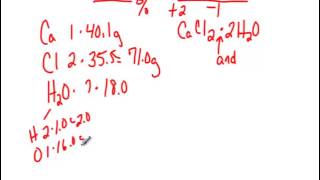 % +2 -1
Ca 1·40.1g CaCl2·2H2O
Cl 2·35.5=71.0g and
H2O · ? · 18.0
H 2·1.0=2.0
O 1·16.0=